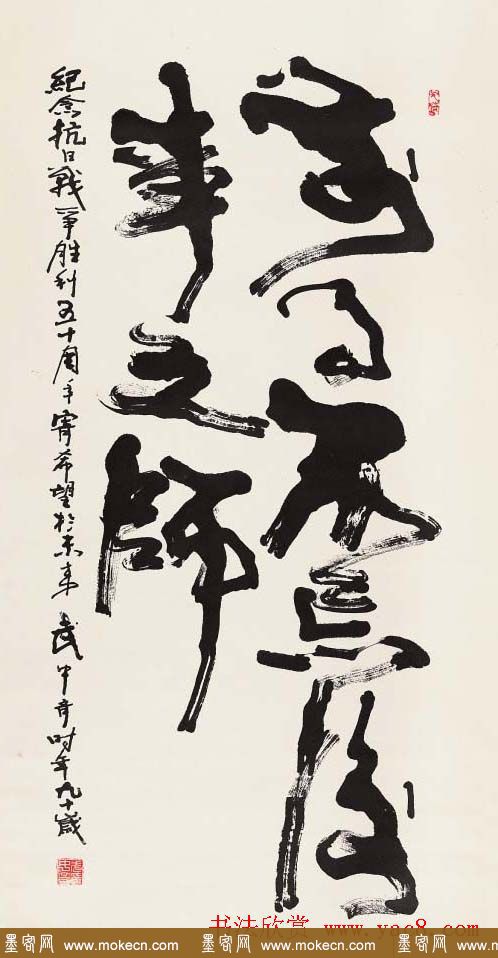 前事不忘後
事之師
紀念抗日戰爭胜利五十周年寄希望於未来 武中奇时年九十歲
书法欣赏 www.yac8.com
墨客网 www.mokecn.com 墨客网 www.mokecn.com 墨客网 www.mokecn.com